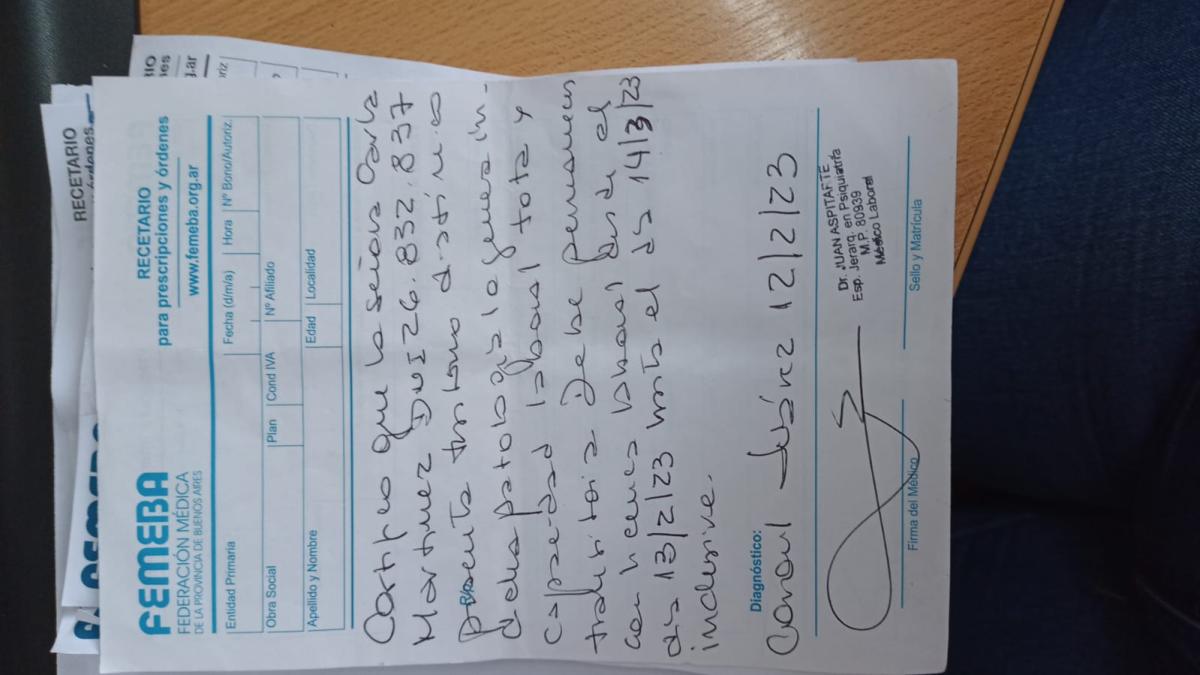 RECETARIO
FEMEBA
FEDERACIÓN MÉDICA
DE LA PROVINCIA DE BUENOS AIRES
RECETARIO
para prescripciones y órdenes
www.femeba.org.ar
Entidad Primaria
Fecha (d/m/a)
Hora
Nº Bono/Autoriz.
Obra Social
Plan
Cond IVA
Nº Afiliado
Apellido y Nombre
Edad
Localidad
Certifico que la señora Carla
Martinez DNI 26.832.837
presenta trastorno
dicha patología le genera in-
capacidad laboral total y
transitoria Debe permanecer
con licencia laboral desde el
día 13/2/23 hasta el día 14/3/23
inclusive.
Diagnóstico:
Coronel Suárez 12/2/23
Dr. JUAN ASPITARTE
Esp. Jerarq. en Psiquiatría
M.P. 80939
Médico Laboral
Firma del Médico
Sello y Matrícula